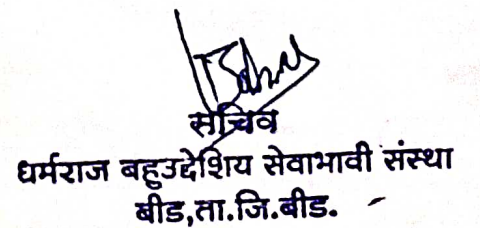 सचिव
धर्मराज बहुउद्देशिय सेवाभावी संस्था
बीड,ता.जि.बीड.